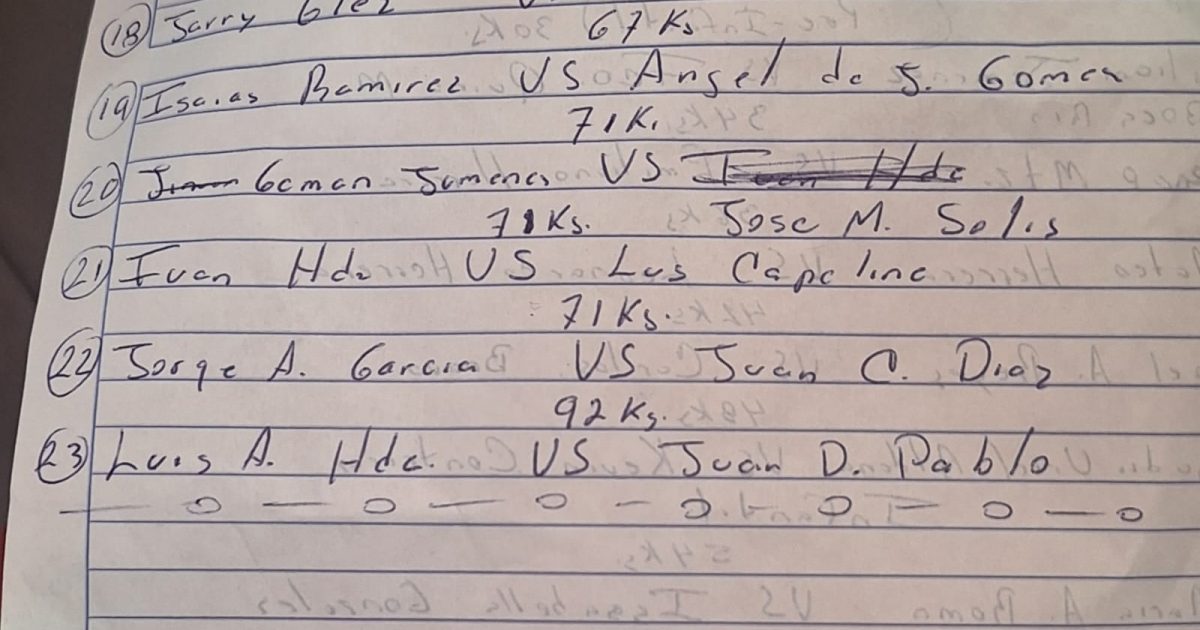 (18) Jarry Glez
67 Ks
(19) Isaias Ramirez VS Angel de J. Gomez
71 K.
(20) German Jimenez VS
71 Ks. Jose M. Solis
(21) Ivan Hdz VS Luis Capeline
71 Ks.
(22) Jorge A. Garcia VS Juan C. Diaz
92 Ks.
(23) Luis A. Hdz. VS Juan D. Pablo